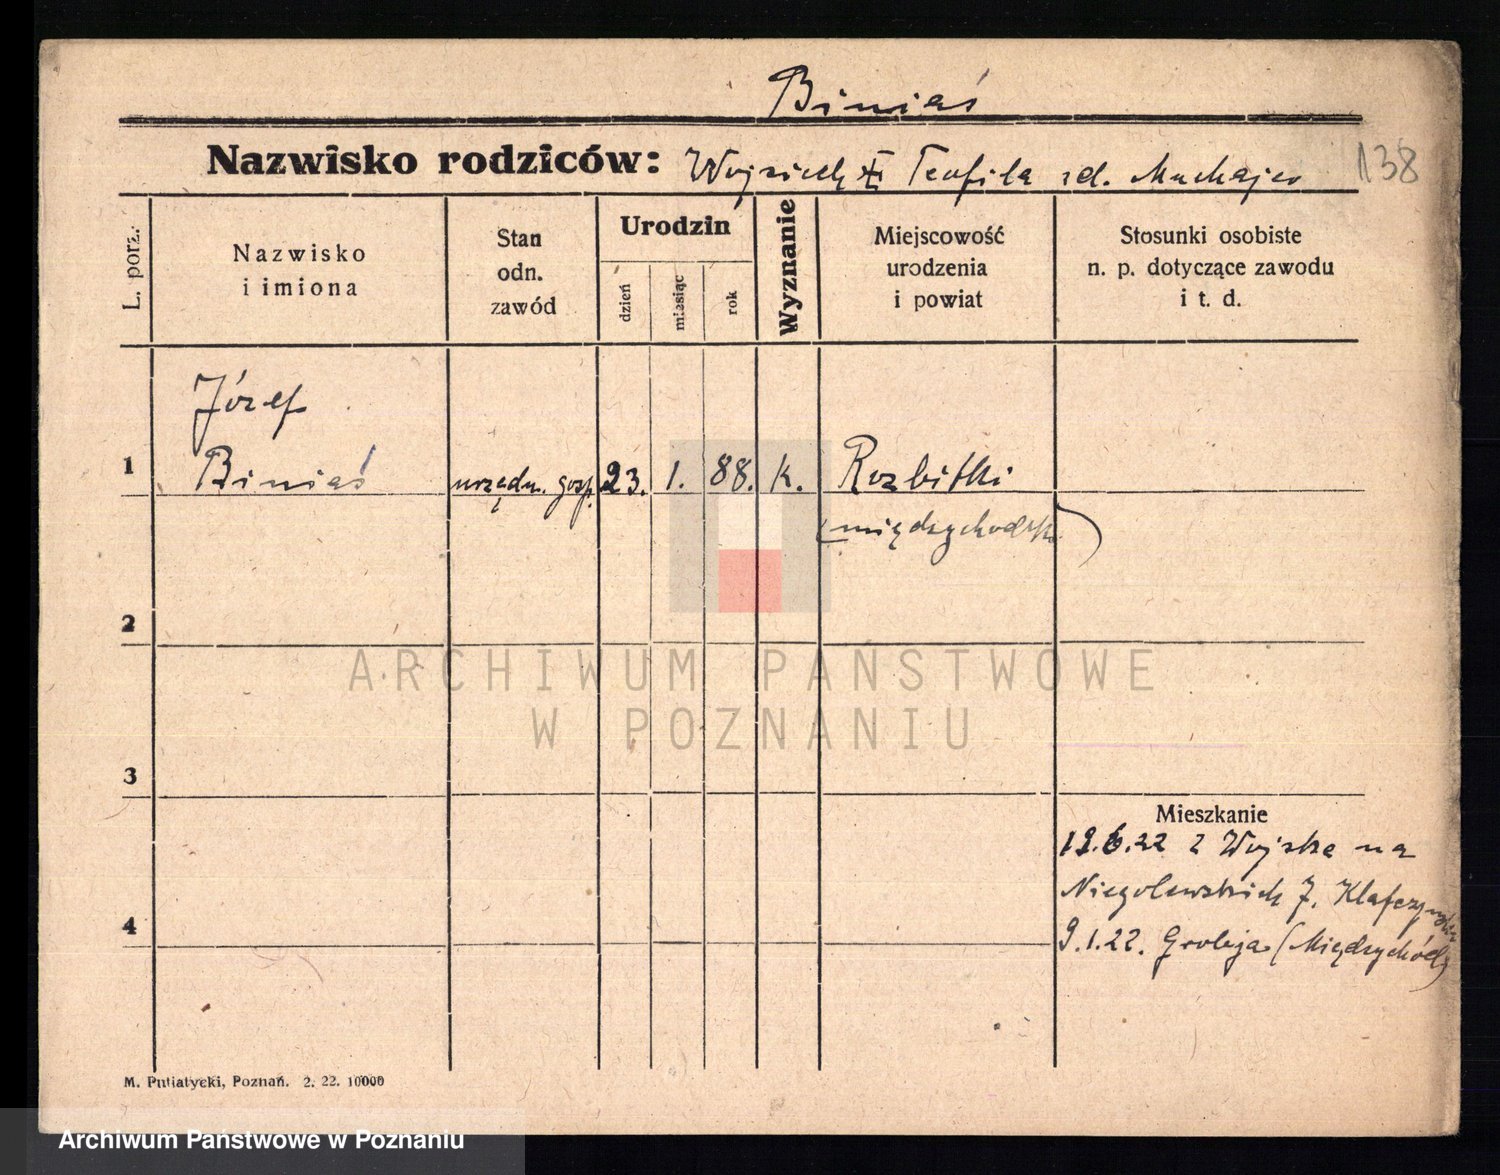 Biniaś
Nazwisko rodziców: Wojciech Teofila zd.
138
L. porz.
Nazwisko
i imiona
Stan
odn.
zawód
Urodzin
dzień
miesiąc
rok
Wyznanie
Miejscowość
urodzenia
i powiat
Stosunki osobiste
n. p. dotyczące zawodu
i t. d.
Józef
1 Biniaś urzędn. gosp. 23. 1. 88. k. Rozbitki
(międzychodzki)
2
ARCHIWUM PAŃSTWOWE
W POZNANIU
3
Mieszkanie
19.6.22 z Wojska na
Niegolewskich 7.
4
9.1.22. Grobja (Międzychód)
M. Putiatycki, Poznań. 2. 22. 10000
Archiwum Państwowe w Poznaniu